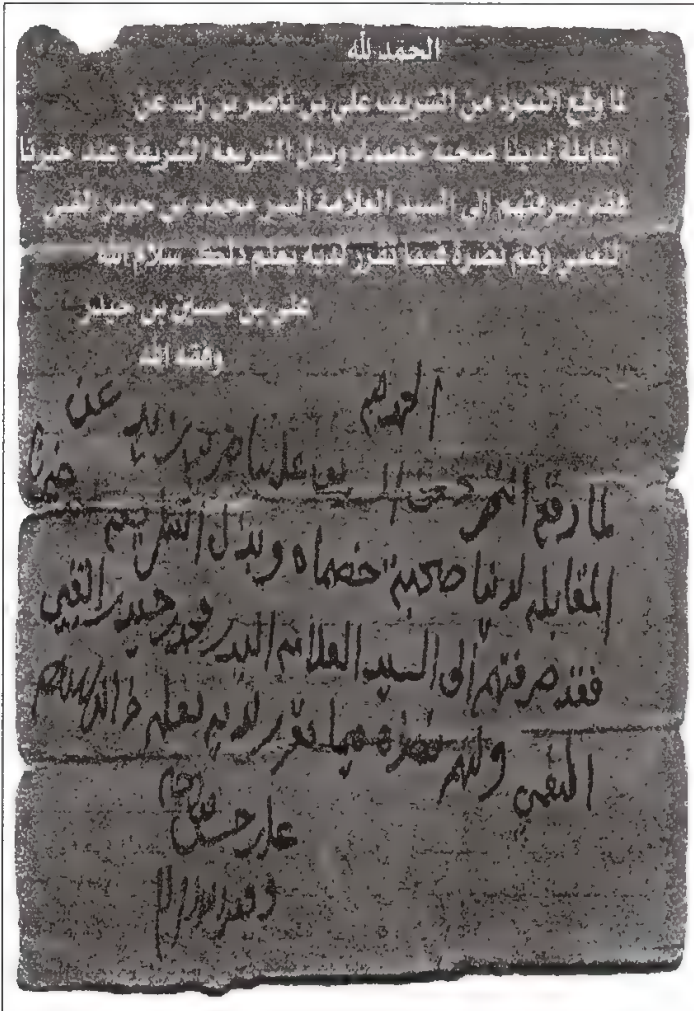 الحمد لله
لما وقع التمرد من الشريف علي بن ناصر بن زيد عن
المقابلة لدينا صحبة خصماه وبذل الشريعة الشريفة عند خبرنا
فقد صرفتهم إلى السيد العلامة محمد بن حيدر القبي
النعمي ولهم نصره فيما تقرر لديه يعلم ذلك سلام الله
علي بن حسين بن حيدر
وفقه الله
الحمد لله
لما وقع من علي ناصر بن زيد عن
المقابله لدينا صحبة خصماه وبذل
فقد صرفتهم الى السيد العلامه حيدر القبي
النعمي ولهم نصره فيما تقرر لديه يعلم ذالك
علي حسين
وفقه الله